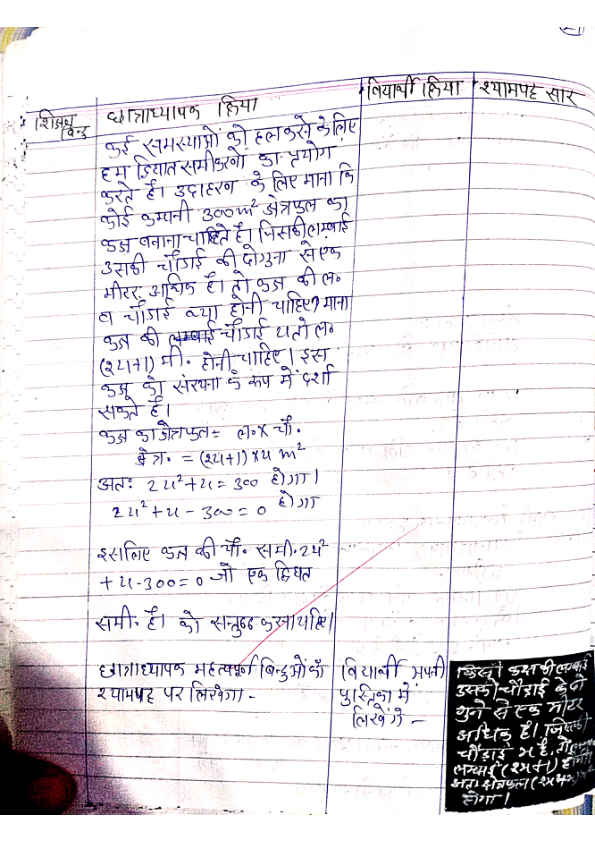 शिक्षण बिन्दु
छात्राध्यापक क्रिया
विद्यार्थी क्रिया
श्यामपट्ट सार
कई समस्याओं को हल करने के लिए
हम द्विघात समीकरणों का प्रयोग
करते हैं। उदाहरण के लिए माना कि
कोई कम्पनी 300m² क्षेत्रफल का
कक्ष बनाना चाहते है। जिसकी लम्बाई
उसकी चौडाई की दोगुना से एक
मीटर अधिक है। तो कक्ष की ल॰
व चौडाई क्या होनी चाहिए? माना
कक्ष की चौडाई य तो ल॰
(2य+1) मी॰ होनी चाहिए। इस
कक्ष को संरचना के रूप में दर्शा
सकते है।
कक्ष का क्षेत्रफल = ल॰ x चौ॰
क्षेत्र॰ = (2य+1) x य m²
अतः 2य²+य = 300 होगा।
2य²+य - 300 = 0 होगा
इसलिए कक्ष की चौ॰ समी॰ 2य²
+य-300=0 जो एक द्विघात
समी॰ है। को सन्तुष्ट करना चाहिए।
छात्राध्यापक महत्वपूर्ण बिन्दुओं को
श्यामपट्ट पर लिखेगा -
विद्यार्थी अपनी
पुस्तिका में
लिखेंगे -
किसी कक्ष की लम्बाई
उसकी चौडाई के दो
गुने से एक मीटर
अधिक है। जिसकी
चौडाई x है, तो
लम्बाई (2x+1) होगी
अतः क्षेत्रफल
होगा।